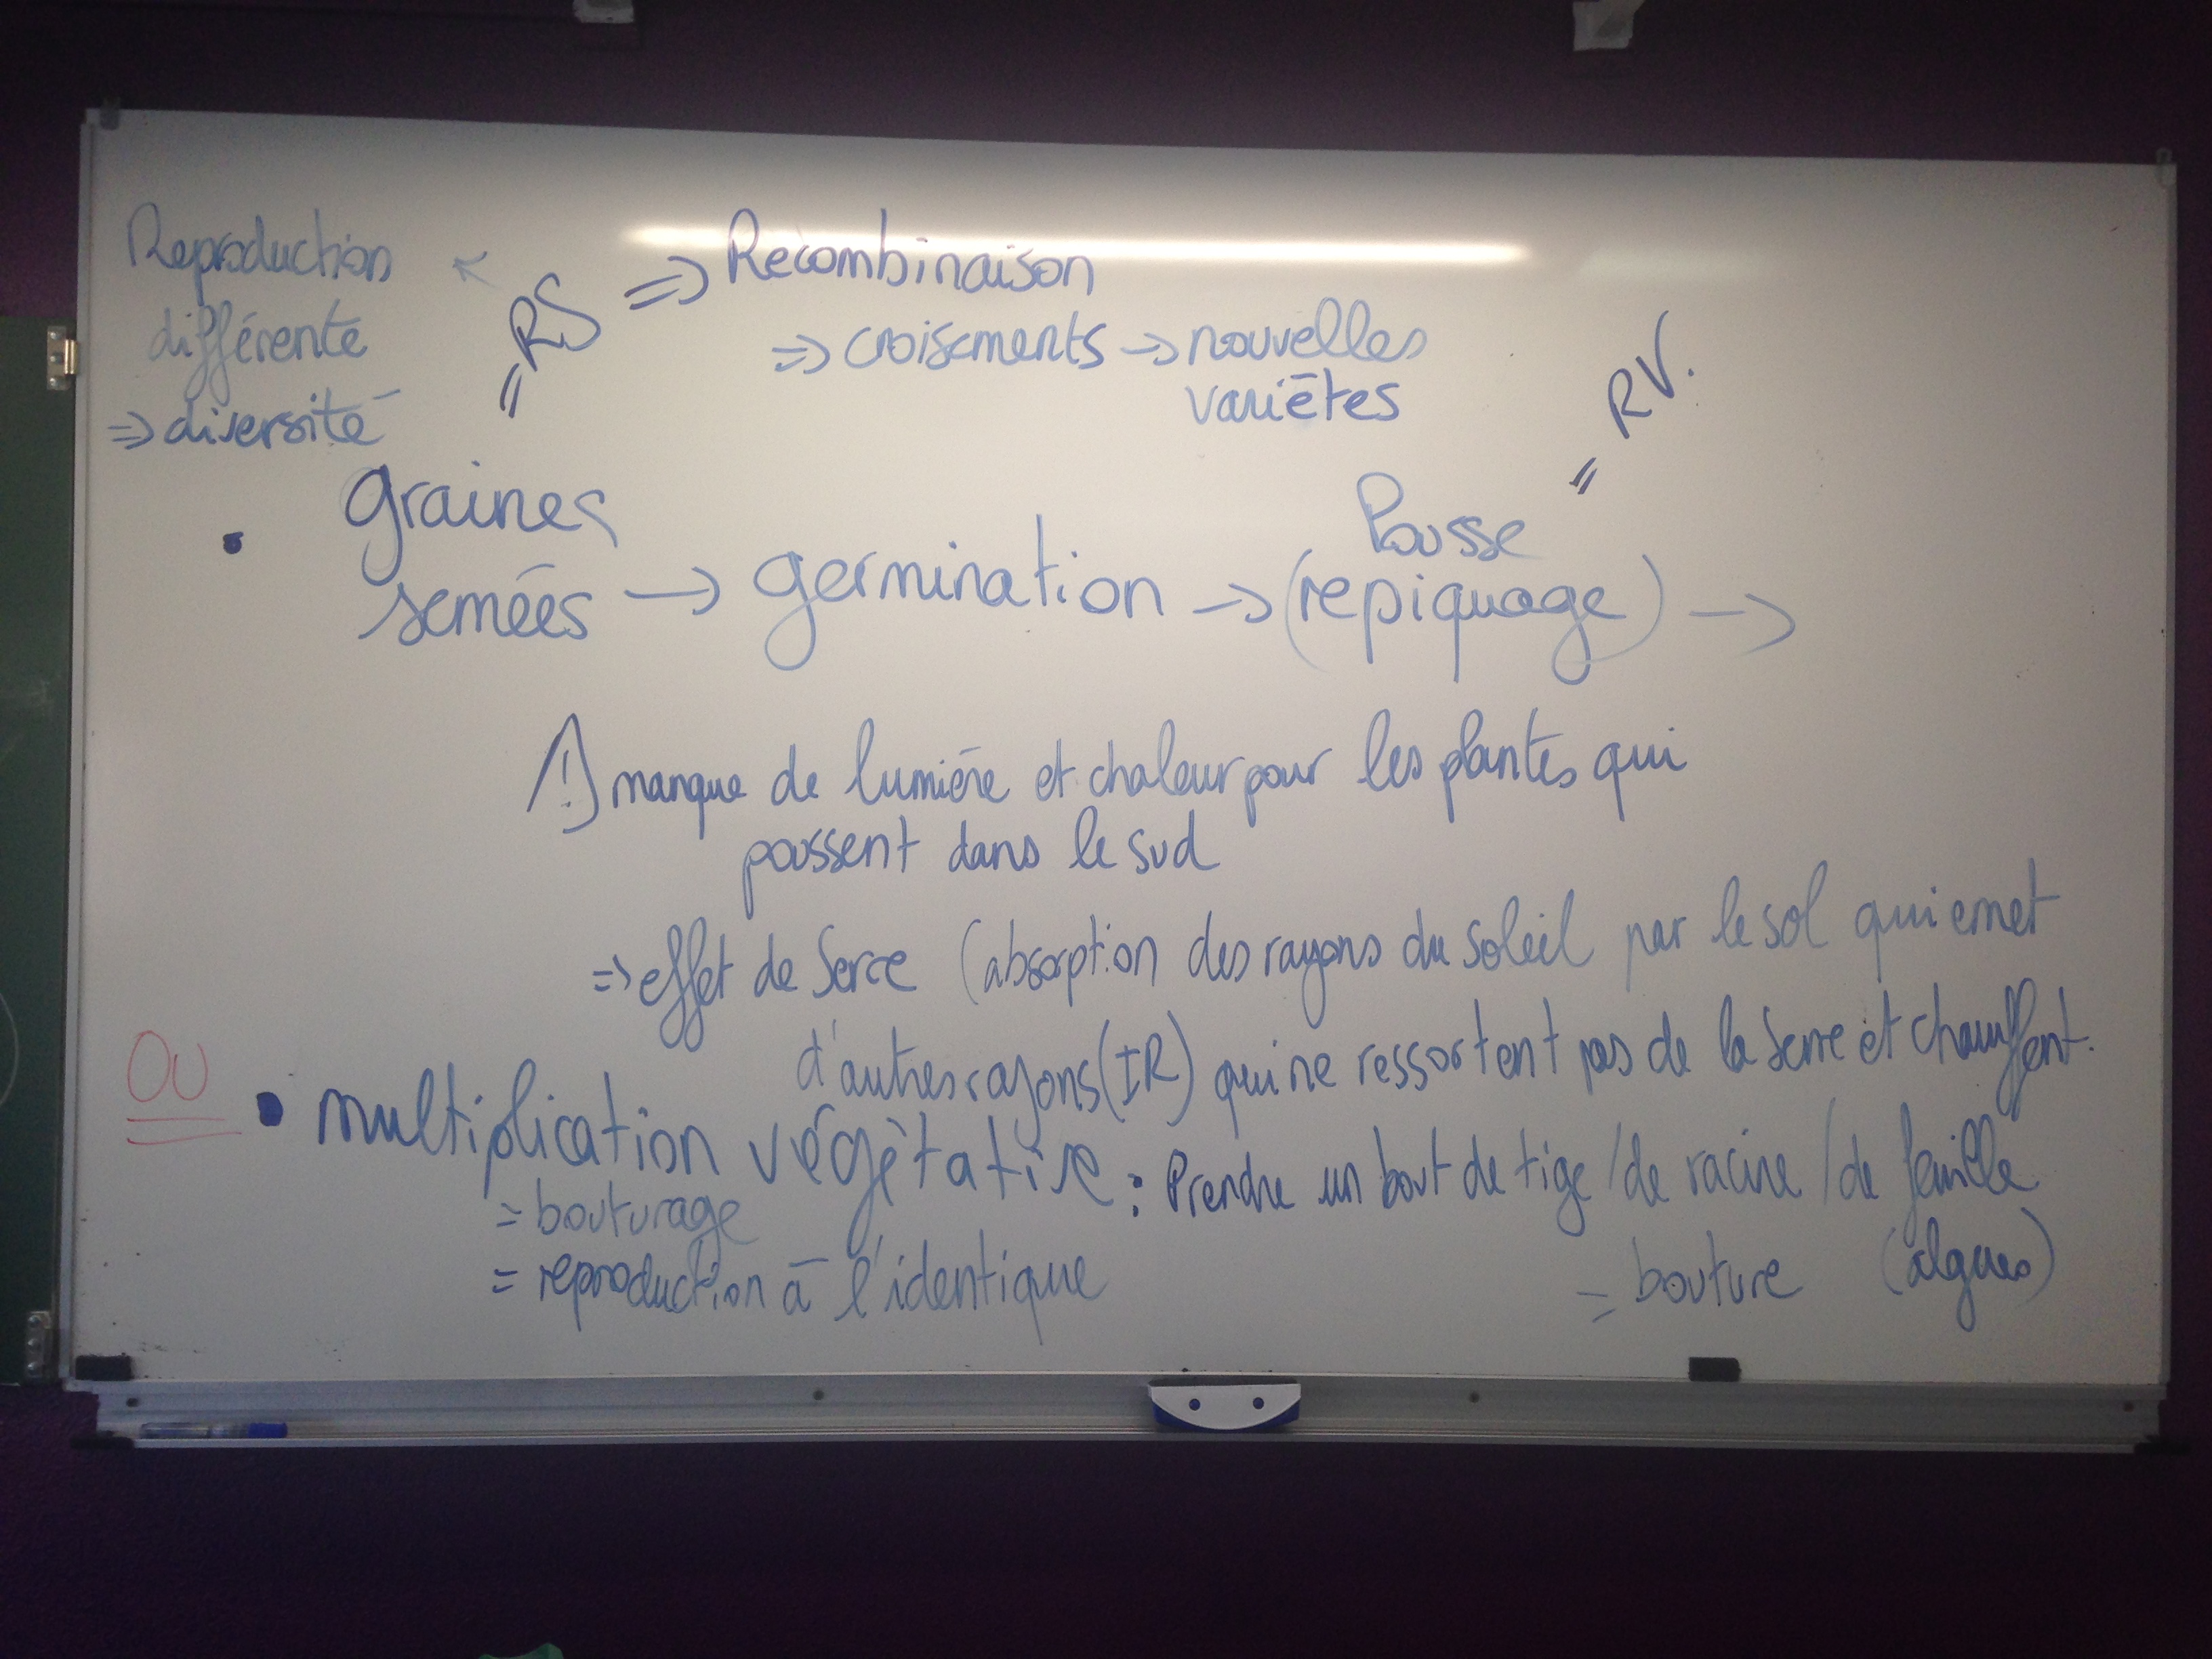 Reproduction
différente
=> diversité
= RS => Recombinaison
=> croisements -> nouvelles
variétes
= RV.
• graines
semées -> germination -> (repiquage) ->
Pousse
/!\ manque de lumière et chaleur pour les plantes qui
poussent dans le sud
=> effet de Serre (absorption des rayons du soleil par le sol qui emet
d'autres rayons (IR) qui ne ressortent pas de la serre et chauffent.
OU
• multiplication végétative : Prendre un bout de tige / de racine / de feuille
= bouturage
= reproduction à l'identique
= bouture (algues)